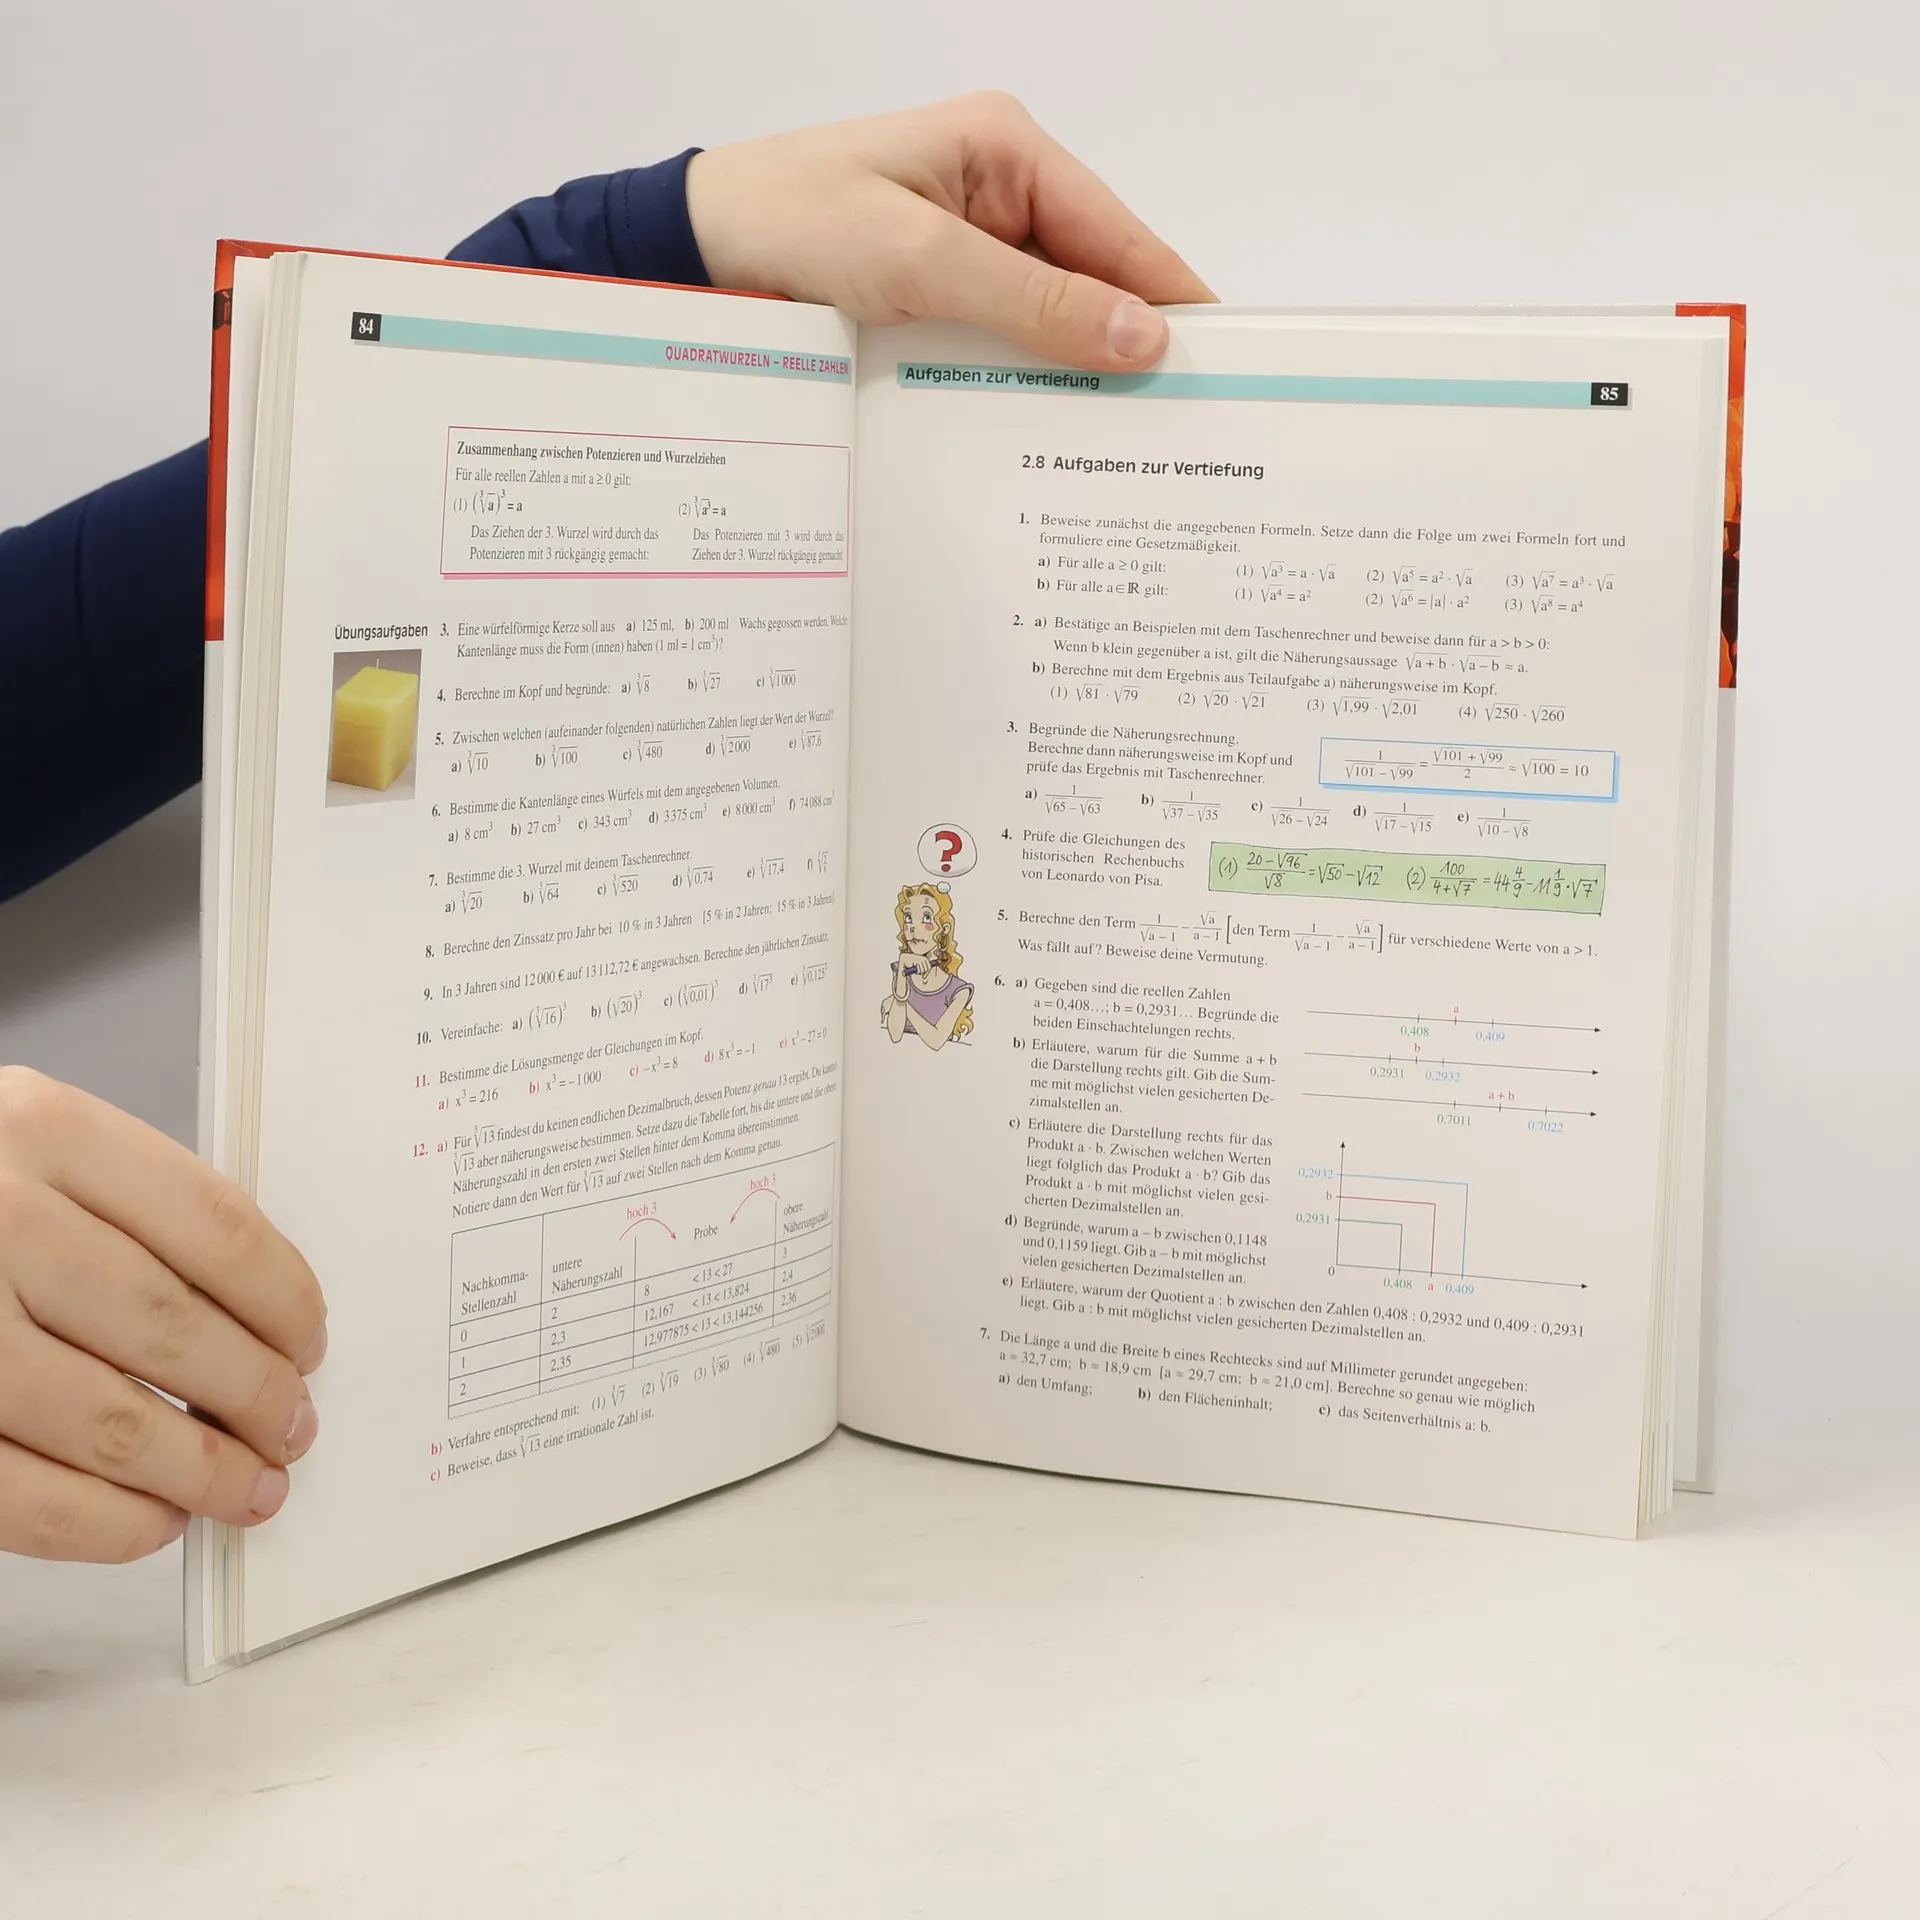 84
QUADRATWURZELN – REELLE ZAHLEN
Zusammenhang zwischen Potenzieren und Wurzelziehen
Für alle reellen Zahlen a mit a ≥ 0 gilt:
(1) (∛a)³ = a (2) ∛a³ = a
Das Ziehen der 3. Wurzel wird durch das Das Potenzieren mit 3 wird durch das
Potenzieren mit 3 rückgängig gemacht: Ziehen der 3. Wurzel rückgängig gemacht
Übungsaufgaben
3. Eine würfelförmige Kerze soll aus a) 125 ml, b) 200 ml Wachs gegossen werden. Welche
Kantenlänge muss die Form (innen) haben (1 ml = 1 cm³)?
4. Berechne im Kopf und begründe: a) ∛8 b) ∛27 c) ∛1000
5. Zwischen welchen (aufeinander folgenden) natürlichen Zahlen liegt der Wert der Wurzel?
a) ∛10 b) ∛100 c) ∛480 d) ∛2000 e) ∛87,6
6. Bestimme die Kantenlänge eines Würfels mit dem angegebenen Volumen.
a) 8 cm³ b) 27 cm³ c) 343 cm³ d) 3375 cm³ e) 8000 cm³ f) 74088 cm³
7. Bestimme die 3. Wurzel mit deinem Taschenrechner.
a) ∛20 b) ∛64 c) ∛520 d) ∛0,74 e) ∛17,4 f)
8. Berechne den Zinssatz pro Jahr bei 10 % in 3 Jahren [5 % in 2 Jahren; 15 % in 3 Jahren]
9. In 3 Jahren sind 12000 € auf 13112,72 € angewachsen. Berechne den jährlichen Zinssatz.
10. Vereinfache: a) (∛16)³ b) (∛20)³ c) (∛0,01)³ d) ∛17³ e) ∛0,125³
11. Bestimme die Lösungsmenge der Gleichungen im Kopf.
a) x³ = 216 b) x³ = – 1000 c) –x³ = 8 d) 8x³ = –1 e) x³ – 27 = 0
12. a) Für ∛13 findest du keinen endlichen Dezimalbruch, dessen Potenz genau 13 ergibt. Du kannst
∛13 aber näherungsweise bestimmen. Setze dazu die Tabelle fort, bis die untere und die obere
Näherungszahl in den ersten zwei Stellen hinter dem Komma übereinstimmen.
Notiere dann den Wert für ∛13 auf zwei Stellen nach dem Komma genau.
hoch 3 hoch 3
Nachkomma- untere Probe obere
Stellenzahl Näherungszahl Näherungszahl
0 2 8 < 13 < 27 3
1 2,3 12,167 < 13 < 13,824 2,4
2 2,35 12,977875 < 13 < 13,144256 2,36
b) Verfahre entsprechend mit: (1) ∛7 (2) ∛19 (3) ∛80 (4) ∛480 (5) ∛2000
c) Beweise, dass ∛13 eine irrationale Zahl ist.
Aufgaben zur Vertiefung
85
2.8 Aufgaben zur Vertiefung
1. Beweise zunächst die angegebenen Formeln. Setze dann die Folge um zwei Formeln fort und
formuliere eine Gesetzmäßigkeit.
a) Für alle a ≥ 0 gilt: (1) √a³ = a · √a (2) √a⁵ = a² · √a (3) √a⁷ = a³ · √a
b) Für alle a ∈ ℝ gilt: (1) √a⁴ = a² (2) √a⁶ = |a| · a² (3) √a⁸ = a⁴
2. a) Bestätige an Beispielen mit dem Taschenrechner und beweise dann für a > b > 0:
Wenn b klein gegenüber a ist, gilt die Näherungsaussage √a + b · √a – b ≈ a.
b) Berechne mit dem Ergebnis aus Teilaufgabe a) näherungsweise im Kopf.
(1) √81 · √79 (2) √20 · √21 (3) √1,99 · √2,01 (4) √250 · √260
3. Begründe die Näherungsrechnung.
Berechne dann näherungsweise im Kopf und
prüfe das Ergebnis mit Taschenrechner.
1/(√101 – √99) = (√101 + √99)/2 ≈ √100 = 10
a) 1/(√65 – √63) b) 1/(√37 – √35) c) 1/(√26 – √24) d) 1/(√17 – √15) e) 1/(√10 – √8)
?
4. Prüfe die Gleichungen des
historischen Rechenbuchs
von Leonardo von Pisa.
(1) (20 – √96)/√8 = √50 – √12 (2) 100/(4 + √7) = 44 4/9 – 11 1/9 · √7
5. Berechne den Term 1/(√a – 1) – √a/(a – 1) [den Term 1/(√a – 1) – √a/(a – 1)] für verschiedene Werte von a > 1.
Was fällt auf? Beweise deine Vermutung.
6. a) Gegeben sind die reellen Zahlen
a = 0,408…; b = 0,2931… Begründe die
beiden Einschachtelungen rechts.
b) Erläutere, warum für die Summe a + b
die Darstellung rechts gilt. Gib die Sum-
me mit möglichst vielen gesicherten De-
zimalstellen an.
c) Erläutere die Darstellung rechts für das
Produkt a · b. Zwischen welchen Werten
liegt folglich das Produkt a · b? Gib das
Produkt a · b mit möglichst vielen gesi-
cherten Dezimalstellen an.
d) Begründe, warum a – b zwischen 0,1148
und 0,1159 liegt. Gib a – b mit möglichst
vielen gesicherten Dezimalstellen an.
a
0,408 0,409
b
0,2931 0,2932
a + b
0,7011 0,7022
0,2932
b
0,2931
0 0,408 a 0,409
e) Erläutere, warum der Quotient a : b zwischen den Zahlen 0,408 : 0,2932 und 0,409 : 0,2931
liegt. Gib a : b mit möglichst vielen gesicherten Dezimalstellen an.
7. Die Länge a und die Breite b eines Rechtecks sind auf Millimeter gerundet angegeben:
a ≈ 32,7 cm; b ≈ 18,9 cm [a ≈ 29,7 cm; b ≈ 21,0 cm]. Berechne so genau wie möglich
a) den Umfang; b) den Flächeninhalt; c) das Seitenverhältnis a: b.